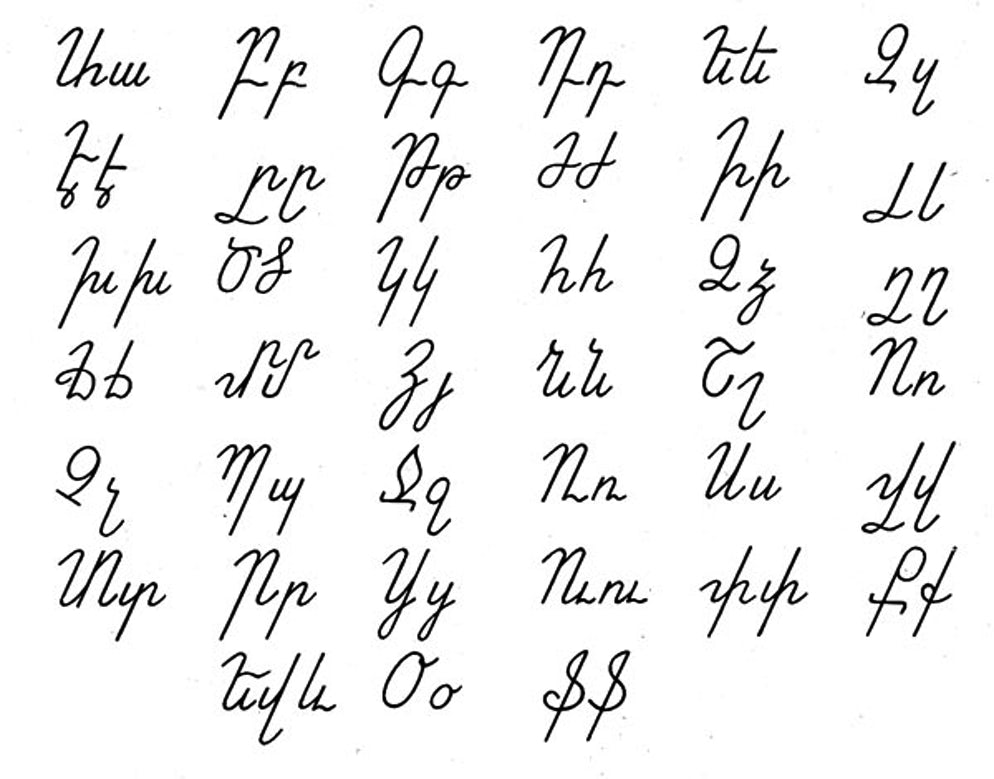 Աա Բբ Գգ Դդ Եե Զզ
Էէ Ըը Թթ Ժժ Իի Լլ
Խխ Ծծ Կկ Հհ Ձձ Ղղ
Ճճ Մմ Յյ Նն Շշ Ոո
Չչ Պպ Ջջ Ռռ Սս Վվ
Տտ Րր Ցց Ուու Փփ Քք
Եվև Օօ Ֆֆ